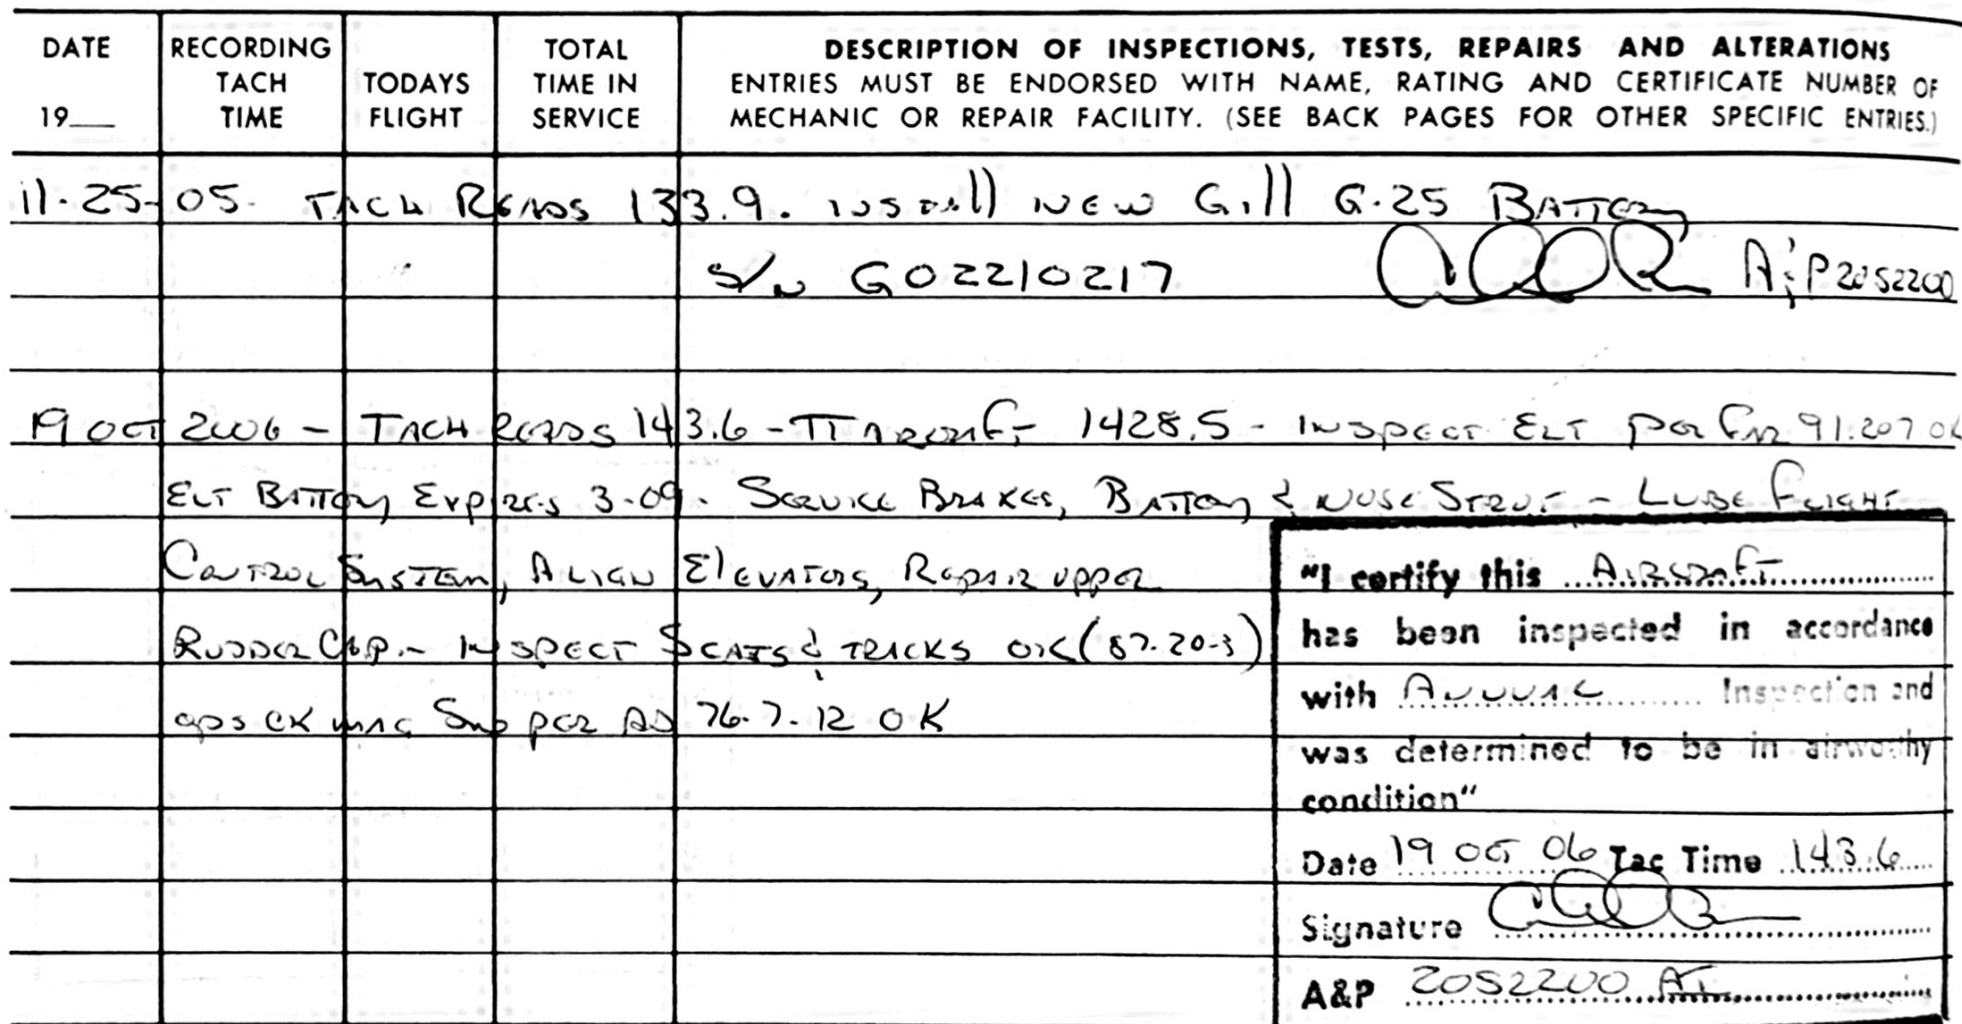 DATE
19__
RECORDING
TACH
TIME
TODAYS
FLIGHT
TOTAL
TIME IN
SERVICE
DESCRIPTION OF INSPECTIONS, TESTS, REPAIRS AND ALTERATIONS
ENTRIES MUST BE ENDORSED WITH NAME, RATING AND CERTIFICATE NUMBER OF
MECHANIC OR REPAIR FACILITY. (SEE BACK PAGES FOR OTHER SPECIFIC ENTRIES.)
11-25-05. TACH READS 133.9. INSTALL NEW Gill G-25 BATTERY
S/N G02210217
A&P 2052200
19 OCT 2006 - TACH READS 143.6 - TT AIRCRAFT 1428.5 - INSPECT ELT PER FAR 91.207 OK
ELT BATTERY EXPIRES 3-09. SERVICE BRAKES, BATTERY & NOSE STRUT - LUBE FLIGHT
CONTROL SYSTEM, ALIGN ELEVATORS, REPAIR UPPER
RUDDER CAP. - INSPECT SEATS & TRACKS OK (87-20-3)
OPS CK MAG SW PER AD 76-7-12 OK
"I certify this AIRCRAFT
has been inspected in accordance
with ANNUAL Inspection and
was determined to be in airworthy
condition"
Date 19 OCT 06 Tac Time 143.6
Signature
A&P 2052200 AI